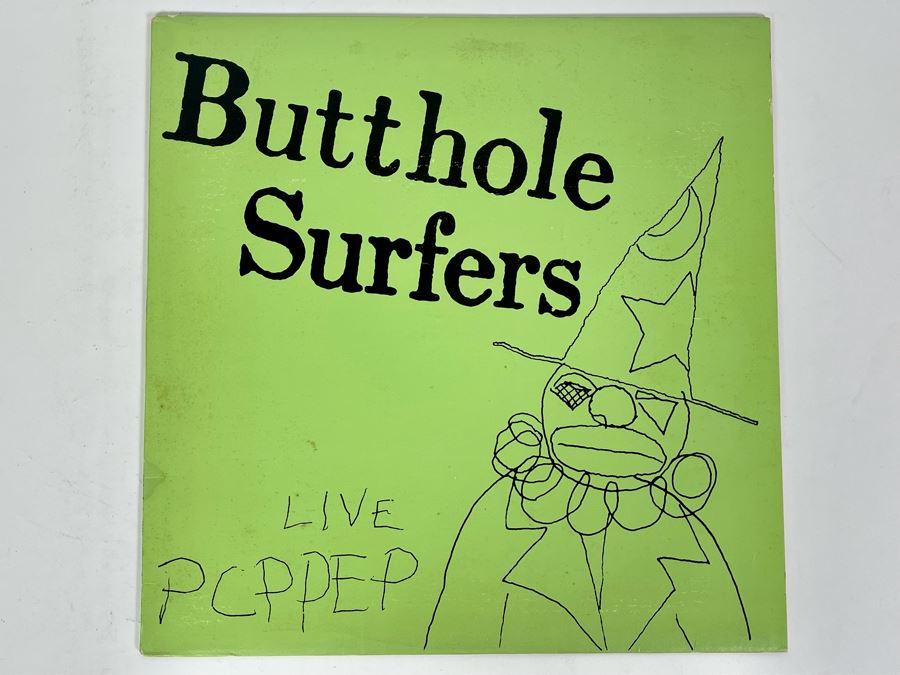 Butthole
Surfers
LIVE
PCPPEP